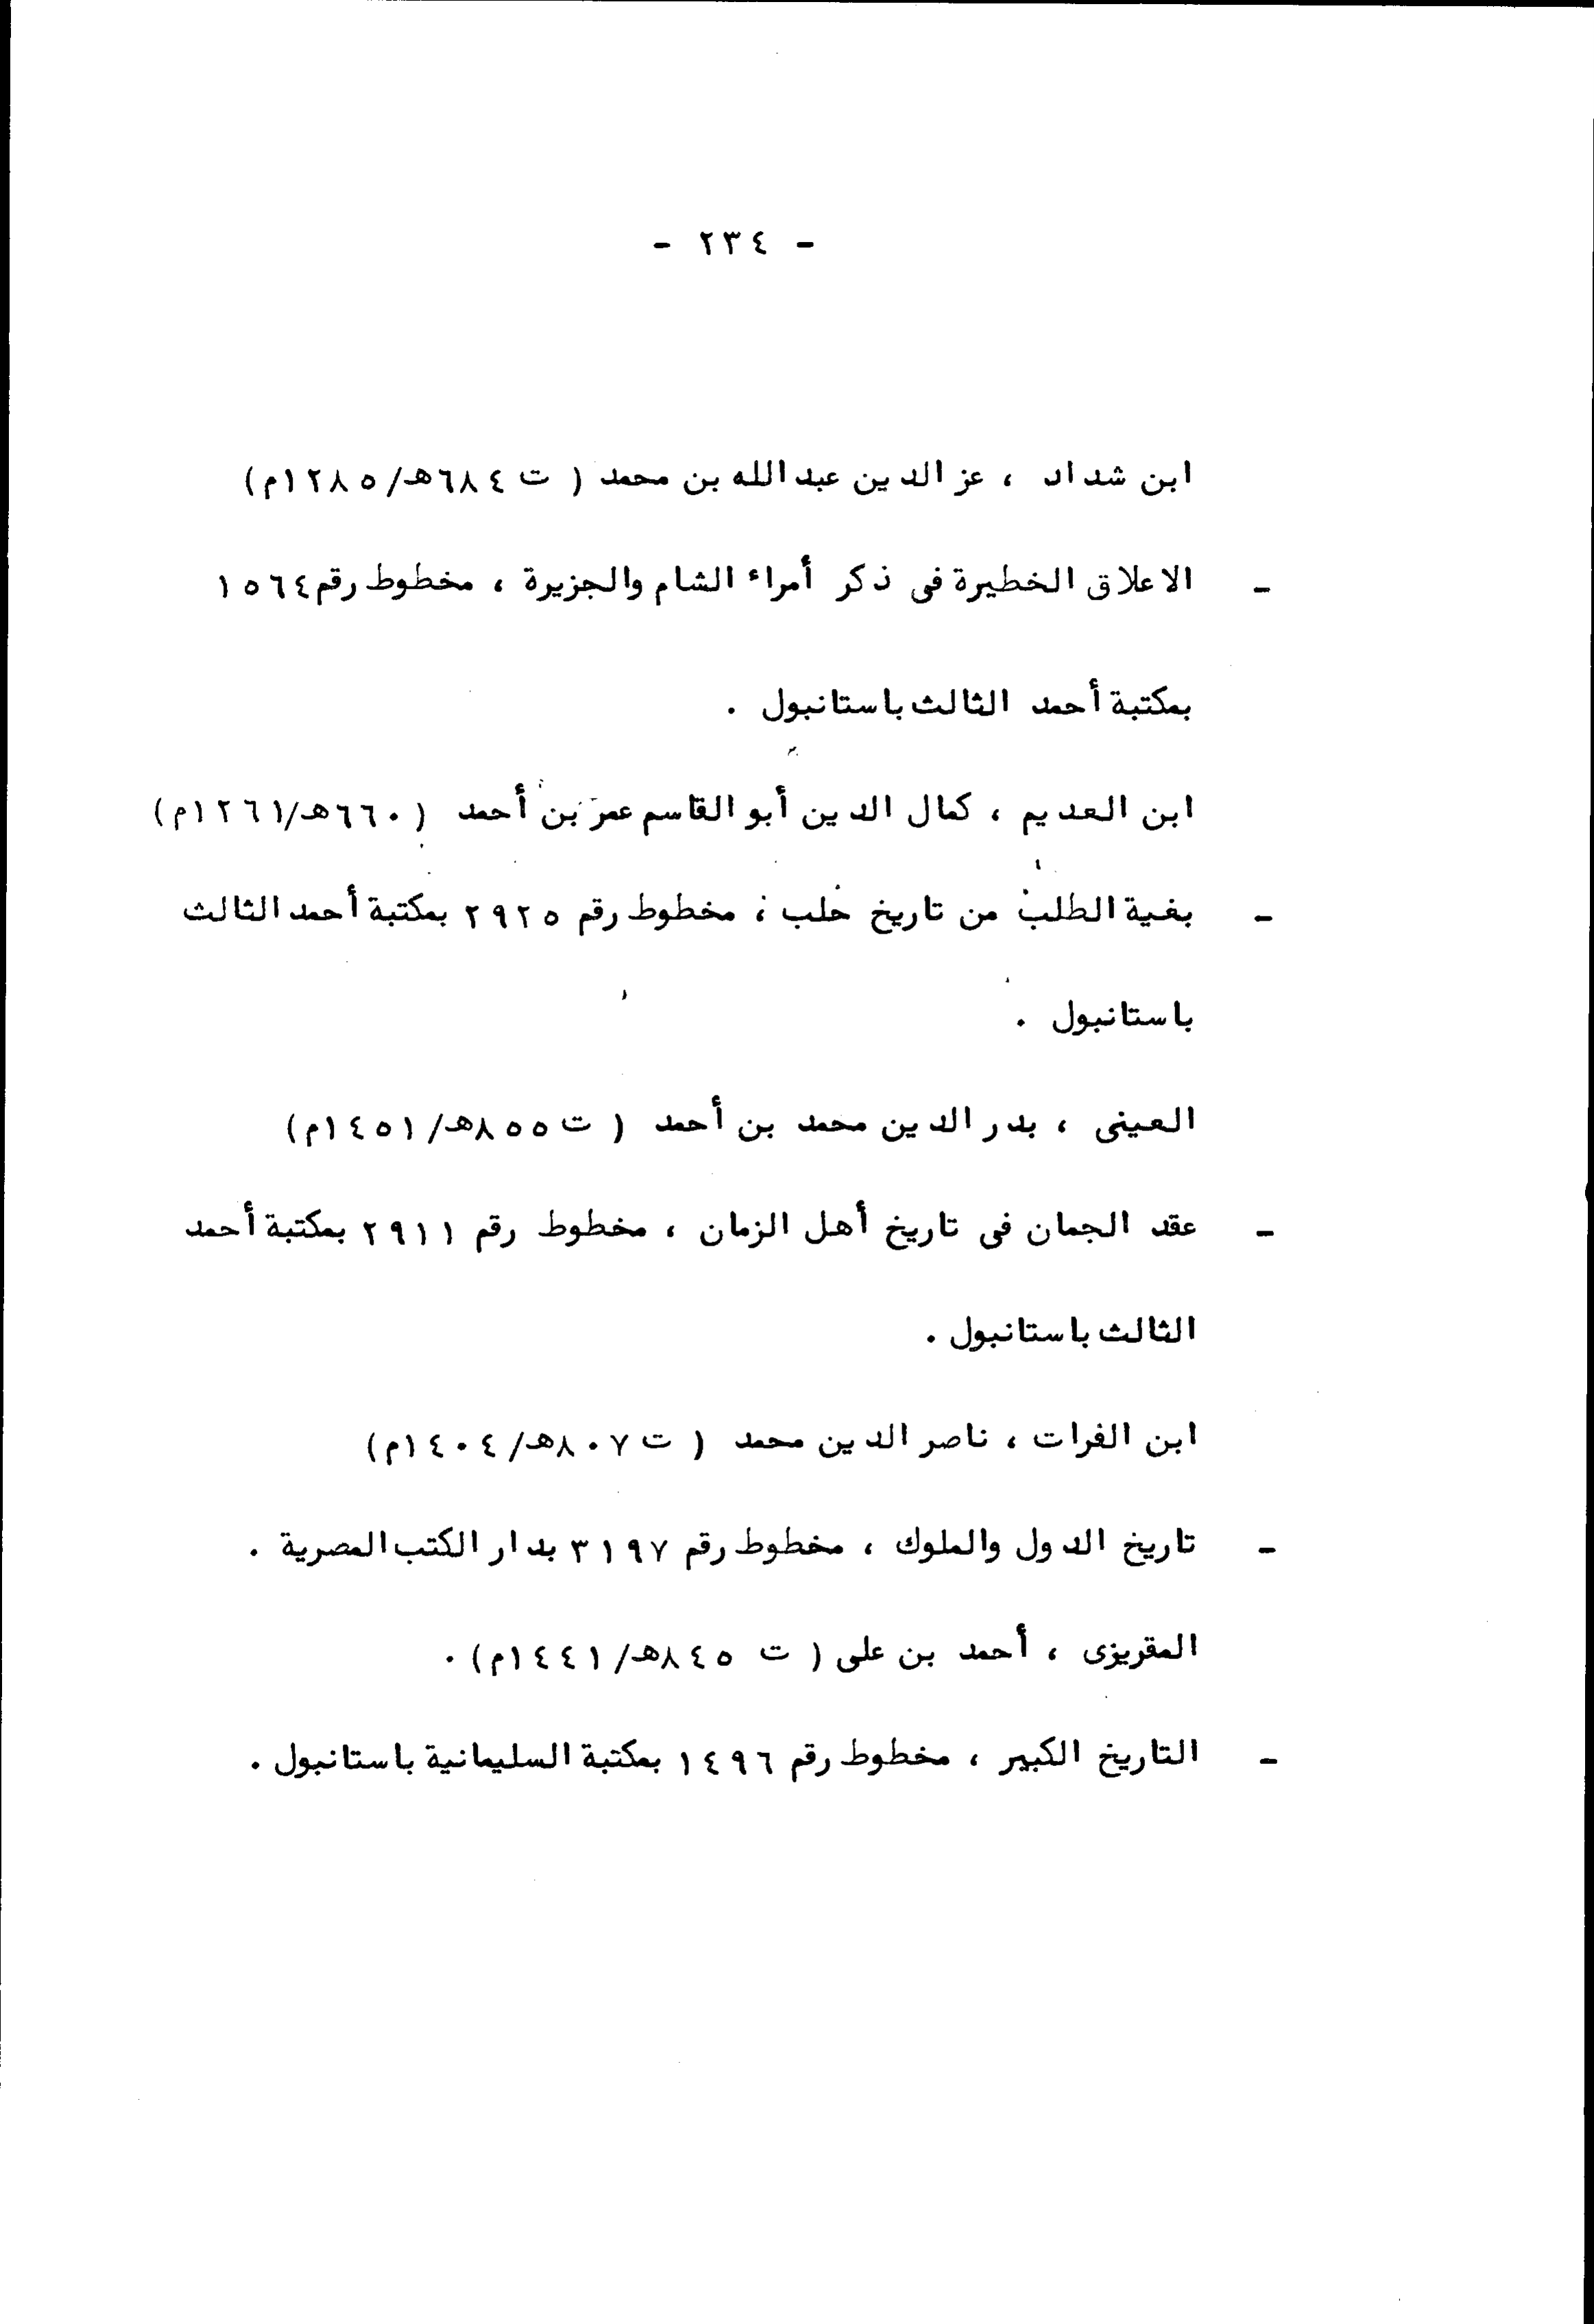 - ٢٣٤ -
ابن شداد ، عز الدين عبد الله بن محمد ( ت ٦٨٤هـ/١٢٨٥م)
- الاعلاق الخطيرة فى ذكر أمراء الشام والجزيرة ، مخطوط رقم ١٥٦٤
بمكتبة أحمد الثالث باستانبول .
ابن العديم ، كمال الدين أبو القاسم عمر بن أحمد ( ٦٦٠هـ/١٢٦١م)
- بغية الطلب من تاريخ حلب ، مخطوط رقم ٢٩٢٥ بمكتبة أحمد الثالث
باستانبول .
العينى ، بدر الدين محمد بن أحمد ( ت ٨٥٥هـ/١٤٥١م)
- عقد الجمان فى تاريخ أهل الزمان ، مخطوط رقم ٢٩١١ بمكتبة أحمد
الثالث باستانبول .
ابن الفرات ، ناصر الدين محمد ( ت ٨٠٧هـ/١٤٠٤م)
- تاريخ الدول والملوك ، مخطوط رقم ٣١٩٧ بدار الكتب المصرية .
المقريزى ، أحمد بن على ( ت ٨٤٥هـ/١٤٤١م) .
- التاريخ الكبير ، مخطوط رقم ١٤٩٦ بمكتبة السليمانية باستانبول .